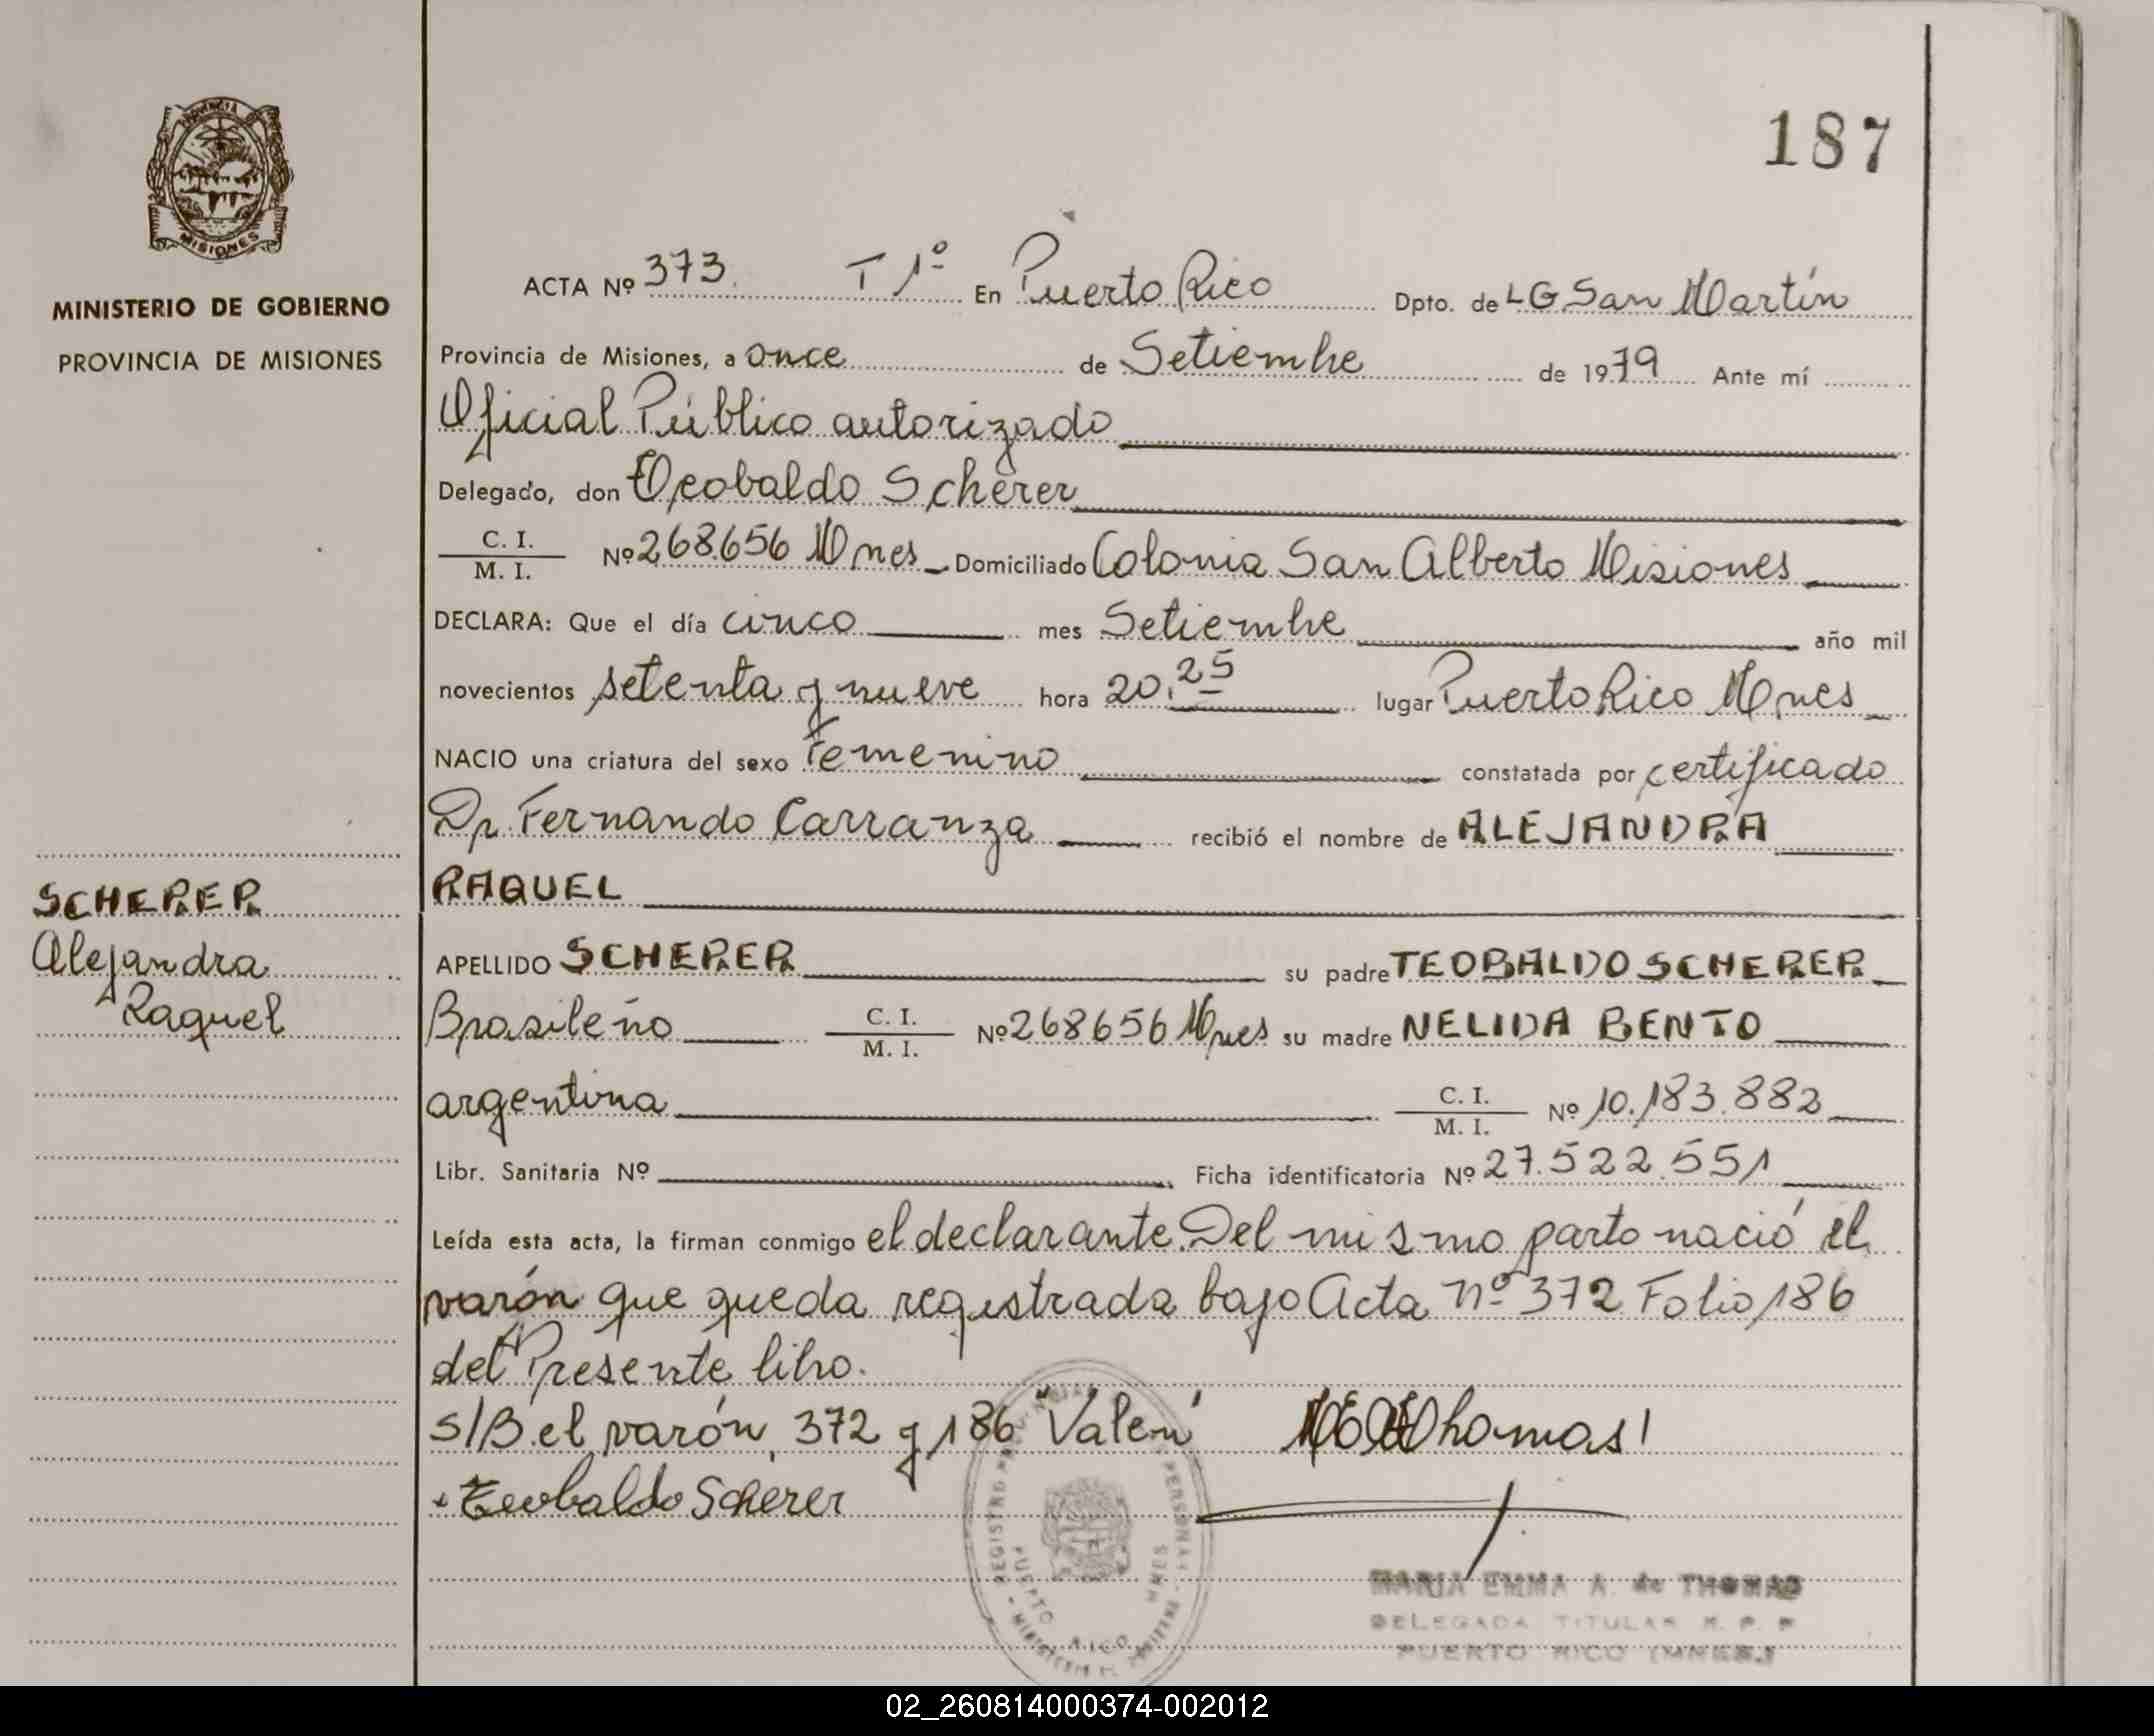 PROVINCIA
MISIONES
MINISTERIO DE GOBIERNO
PROVINCIA DE MISIONES
SCHERER
Alejandra
Raquel
187
ACTA Nº 373. T 1º En Puerto Rico Dpto. de LG San Martín
Provincia de Misiones, a once de Setiembre de 1979 Ante mí
Oficial Público autorizado
Delegado, don Teobaldo Scherer
C. I. / M. I. Nº 268.656 Mnes Domiciliado Colonia San Alberto Misiones
DECLARA: Que el día cinco mes Setiembre año mil
novecientos setenta y nueve hora 20.25 lugar Puerto Rico Mnes
NACIO una criatura del sexo Femenino constatada por certificado
Dr. Fernando Carranza recibió el nombre de ALEJANDRA
RAQUEL
APELLIDO SCHERER su padre TEOBALDO SCHERER
Brasileño C. I. / M. I. Nº 268656 Mnes su madre NELIDA BENTO
argentina C. I. / M. I. Nº 10.183.882
Libr. Sanitaria Nº Ficha identificatoria Nº 27.522.551
Leída esta acta, la firman conmigo el declarante. Del mismo parto nació el
varón que queda registrada bajo Acta nº 372 Folio 186
del Presente libro.
S/B. el varón, 372 y 186 "Valen"
Teobaldo Scherer
MARIA EMMA A. de THOMAS
DELEGADA TITULAR R. P. P
PUERTO RICO (MNES.)
REGISTRO PERSONAS
PUERTO RICO MNES
02_260814000374-002012